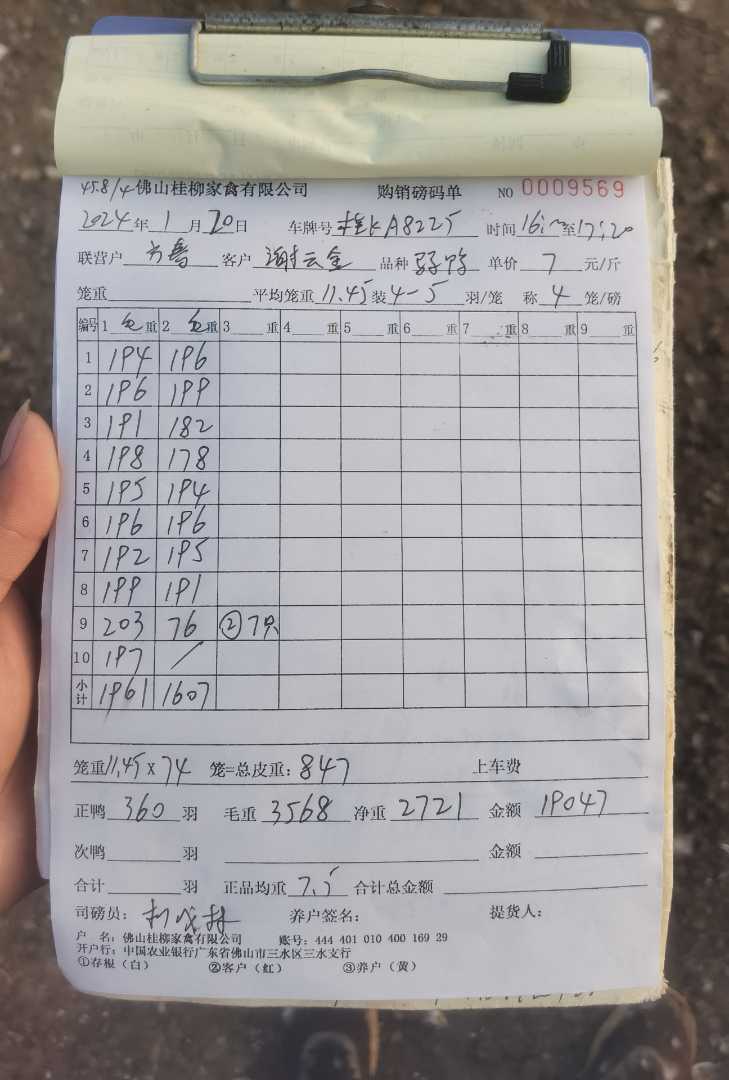 458/4 佛山桂柳家禽有限公司 购销磅码单 NO 0009569
2024年1月20日 车牌号 桂KA8225 时间16:~至17:20
联营户 客户 谢云金 品种 单价 7 元/斤
笼重 平均笼重 11.45 装 4-5 羽/笼 称 4 笼/磅
编号 1 毛重 2 毛重 3 重 4 重 5 重 6 重 7 重 8 重 9 重
1 194 196
2 196 199
3 191 182
4 198 178
5 195 194
6 196 196
7 192 195
8 199 191
9 203 76 ②7只
10 197 /
小计 1961 1607
笼重11.45 x 74 笼=总皮重: 847 上车费
正鸭 360 羽 毛重 3568 净重 2721 金额 19047
次鸭 羽 金额
合计 羽 正品均重 7.5 合计总金额
司磅员: 养户签名: 提货人:
户 名: 佛山桂柳家禽有限公司 账号: 444 401 010 400 169 29
开户行: 中国农业银行广东省佛山市三水区三水支行
①存根(白) ②客户(红) ③养户(黄)